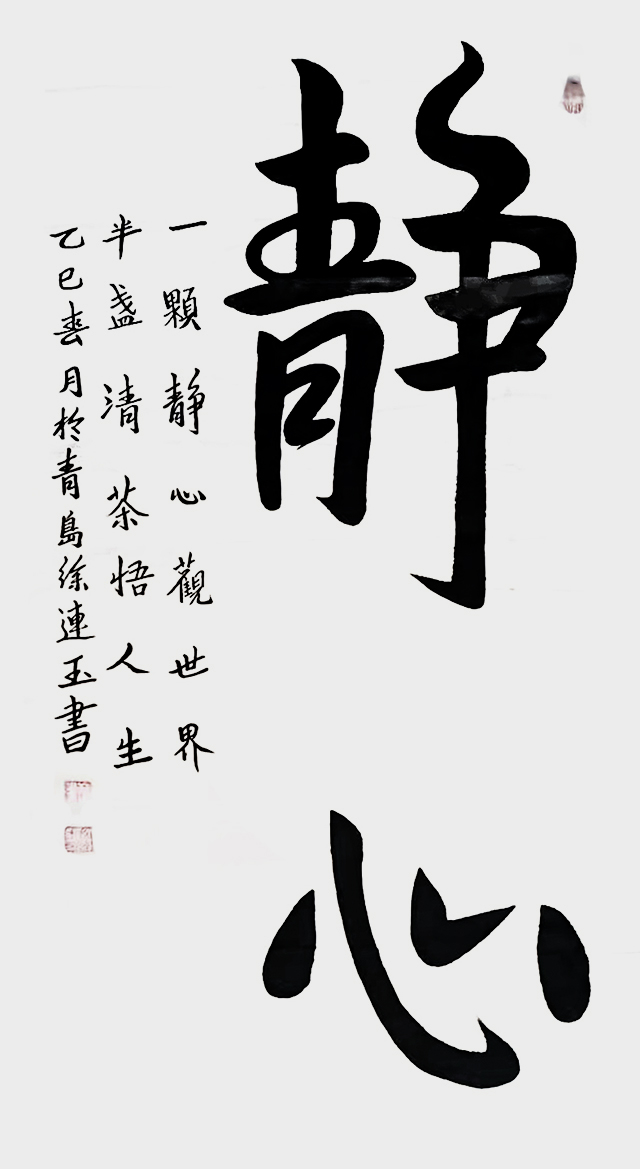 静心
一顆静心觀世界
半盞清茶悟人生
乙巳春月於青島徐連玉書